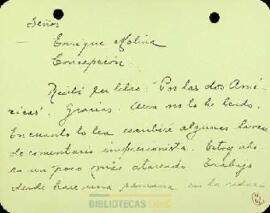 Señor
Enrique Molina
Concepción
Recibí su libro "Por las dos Amé-
ricas". Gracias. Aun no lo he leído.
En cuanto lo lea escribiré algunas líneas
de comentario impresionista. Estoy aho-
ra un poco más atareado. Trabajo
desde hace una semana en la redac
BIBLIOTECA